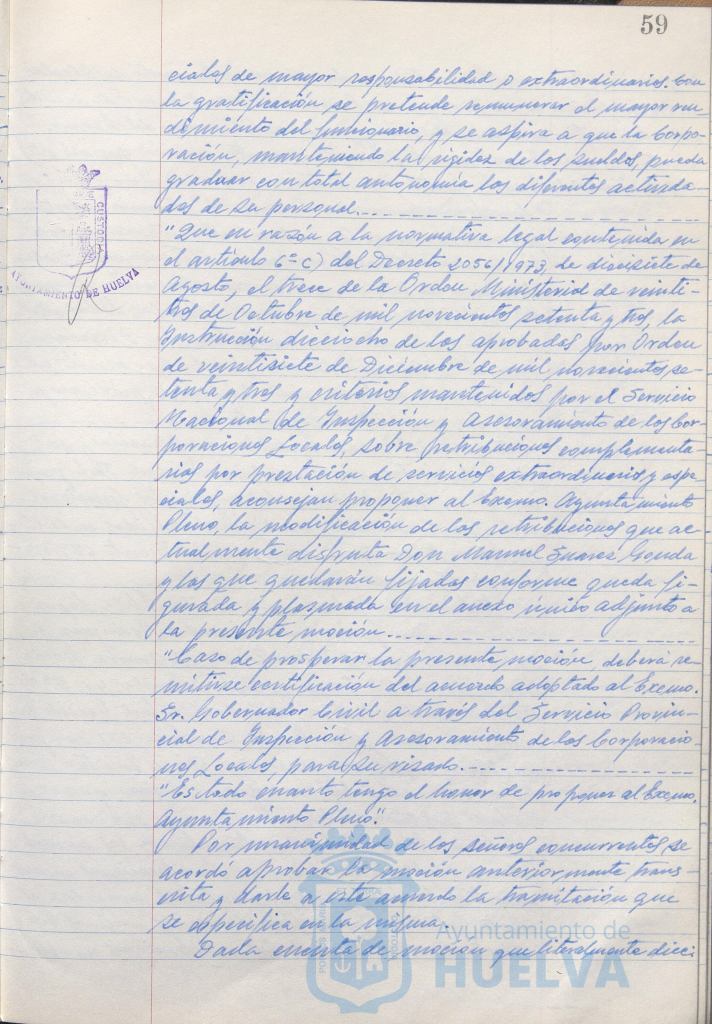 59
ciales de mayor responsabilidad o extraordinarios. Con
la gratificación se pretende remunerar el mayor ren-
dimiento del funcionario, y se aspira a que la Corpo-
ración, manteniendo la rigidez de los sueldos, pueda
graduar con total autonomía los diferentes activida-
des de su personal.
"Que en razón a la normativa legal contenida en
el artículo 6º-c) del Decreto 2056/1973, de diecisiete de
Agosto, el trece de la Orden Ministerial de veinti-
tres de Octubre de mil novecientos setenta y tres, la
Instrucción dieciocho de las aprobadas por Orden
de veintisiete de Diciembre de mil novecientos se-
tenta y tres y criterios mantenidos por el Servicio
Nacional de Inspección y Asesoramiento de las Cor-
poraciones Locales, sobre retribuciones complementa-
rias por prestación de servicios extraordinarios y espe-
ciales, aconsejan proponer al Excmo. Ayuntamiento
Pleno, la modificación de las retribuciones que ac-
tualmente disfruta Don Manuel Suarez
y las que quedarán fijadas conforme queda fi-
gurada y plasmada en el anexo único adjunto a
la presente moción.
"Caso de prosperar la presente moción, deberá re-
mitirse certificación del acuerdo adoptado al Excmo.
Sr. Gobernador Civil a través del Servicio Provin-
cial de Inspección y Asesoramiento de las Corporacio-
nes Locales, para su visado.
"Es todo cuanto tengo el honor de proponer al Excmo.
Ayuntamiento Pleno".
Por unanimidad de los señores concurrentes se
acordó aprobar la moción anteriormente trans-
crita y darle a este acuerdo la tramitación que
se especifica en la misma.
Dada cuenta de moción que literalmente dice:
CUSTODI
AYUNTAMIENTO DE HUELVA
Ayuntamiento de
HUELVA